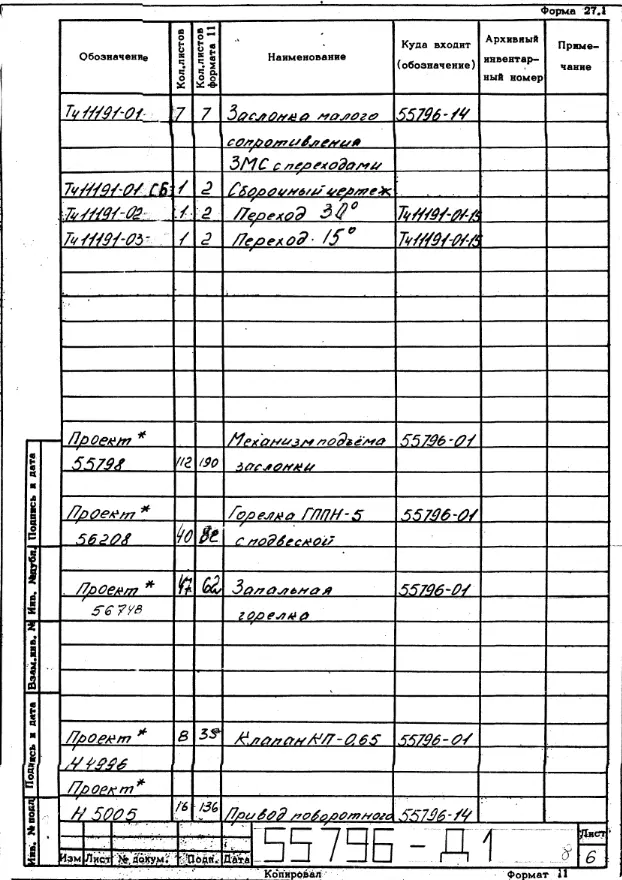 Форма 27.1
Обозначение Кол.листов Кол.листов формата 11 Наименование Куда входит (обозначение) Архивный инвентар- ный номер Приме- чание
Ти11191-01 7 7 Заслонка малого 55796-14
сопротивления
ЗМС с переходами
Ти11191-01 СБ 1 2 Сборочный чертеж
Ти11191-02 1 2 Переход 30° Ти11191-01-15
Ти11191-03 1 2 Переход 15° Ти11191-01-15
Проект * Механизм подъёма 55796-01
55798 112 190 заслонки
Проект * Горелка ГППН-5 55796-01
56208 40 с подвеской
Проект * 47 62 Запальная 55796-01
56748 горелка
Проект * 8 Клапан КП-0,65 55796-01
Н4996
Проект *
Н 5005 16 136 Привод поворотного 55796-14
Инв. № подл
Подпись и дата
Взам.инв. №
Инв. №дубл.
Подпись и дата
Изм Лист № докум. Подп. Дата
55796-Д1
Лист
8 6
Копировал Формат 11